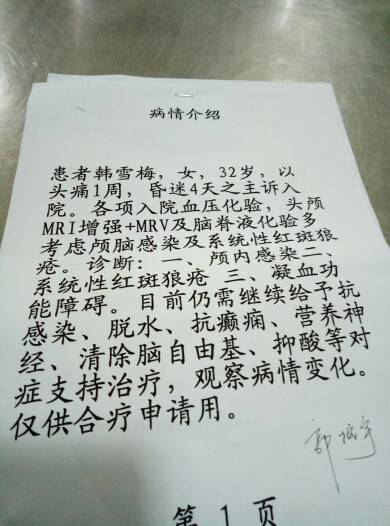 病情介绍
患者韩雪梅，女，32岁，以
头痛1周，昏迷4天之主诉入
院。各项入院血压化验，头颅
MRI增强+MRV及脑脊液化验多
考虑颅脑感染及系统性红斑狼
疮。诊断：一、颅内感染二、
系统性红斑狼疮 三、凝血功
能障碍。目前仍需继续给予抗
感染、脱水、抗癫痫、营养神
经、清除脑自由基、抑酸等对
症支持治疗，观察病情变化。
仅供合疗申请用。
第 1 页